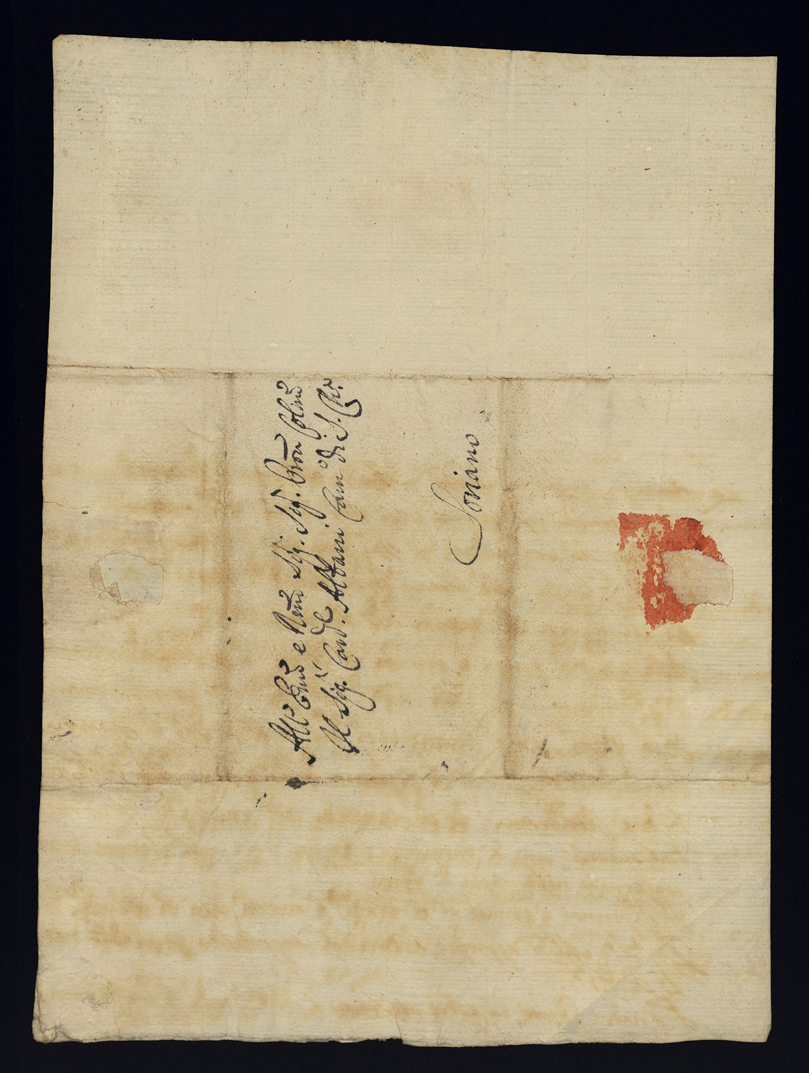 All' Emo e Rmo Sig. Sig. Pron Colmo
Il Sig. Card.le Albani Cam.o di S. Ch.
Soriano